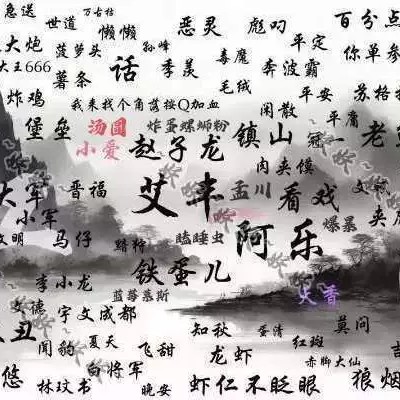 急送 万古枯 懒懒 恶灵 彪叼 百分点
世道 孙峰 平定
大炮 菠萝头 话 季羡 毒魔 奔波霸 你单参
大王666 薯条 毛绒 平安 苏格
炸鸡 我来找个角落按Q加血 闲散 平庸
堡垒 汤圆 炸蛋螺蛳粉 镇山 冠一 老
小爱 赵子龙 肉夹馍
大军 晋福 艾丰 孟川 看戏 文轼
小军 夹
文明 马仔 瞌睡虫 阿乐 爆暴
李小龙 铁蛋儿
文德 宇文成都 蓝莓慕斯 火香
丑 知秋 蛋清 莫问
闻豹 夏天 飞甜 龙虾 红斑 吉
悠 白将军 赤脚大仙
林玟书 晚安 虾仁不眨眼 狼烟